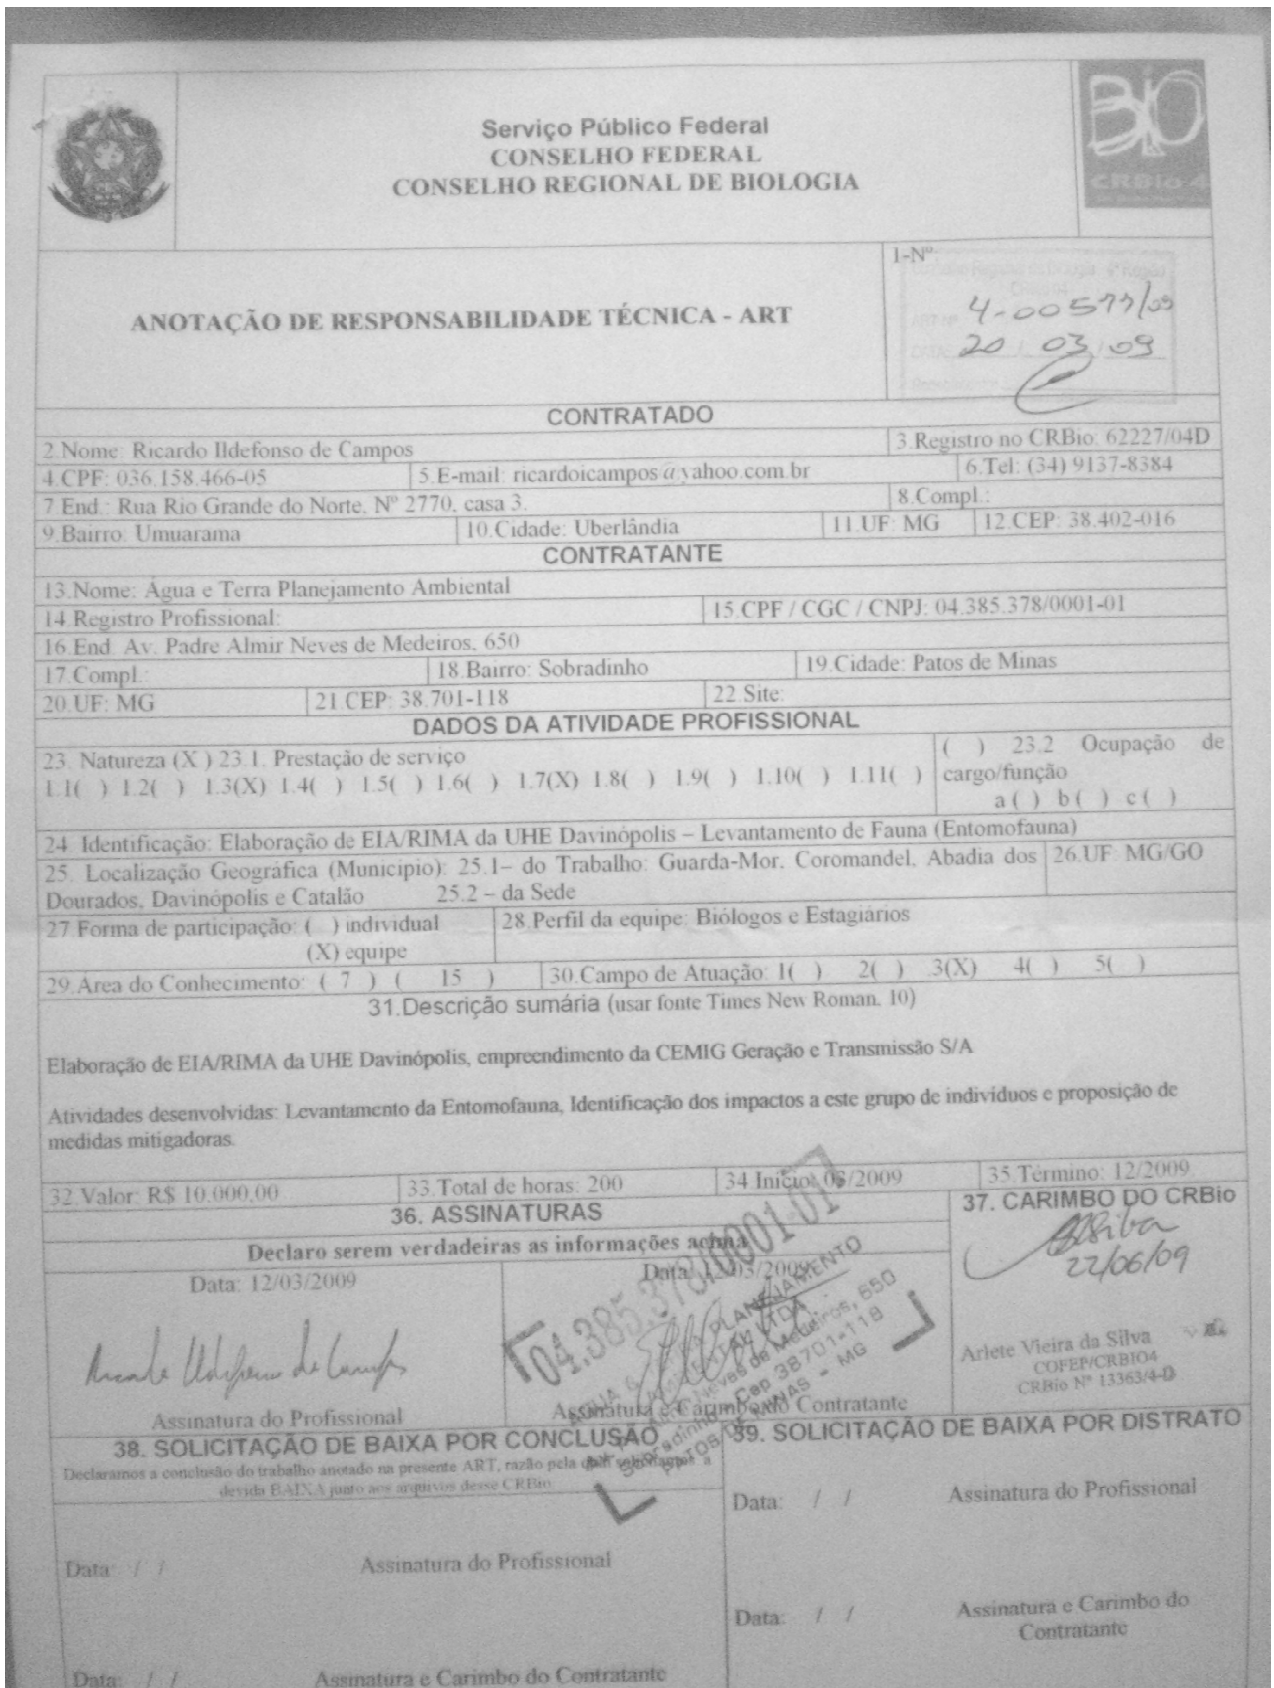 BIO
CRBio-4
Serviço Público Federal
CONSELHO FEDERAL
CONSELHO REGIONAL DE BIOLOGIA
ANOTAÇÃO DE RESPONSABILIDADE TÉCNICA - ART
1-Nº
4-00577/09
20 03/09
CONTRATADO
2.Nome: Ricardo Ildefonso de Campos 3.Registro no CRBio: 62227/04D
4.CPF: 036.158.466-05 5.E-mail: ricardoicampos@yahoo.com.br 6.Tel: (34) 9137-8384
7.End.: Rua Rio Grande do Norte, Nº 2770, casa 3. 8.Compl.:
9.Bairro: Umuarama 10.Cidade: Uberlândia 11.UF: MG 12.CEP: 38.402-016
CONTRATANTE
13.Nome: Água e Terra Planejamento Ambiental
14.Registro Profissional: 15.CPF / CGC / CNPJ: 04.385.378/0001-01
16.End. Av. Padre Almir Neves de Medeiros, 650
17.Compl.: 18.Bairro: Sobradinho 19.Cidade: Patos de Minas
20.UF: MG 21.CEP: 38.701-118 22.Site:
DADOS DA ATIVIDADE PROFISSIONAL
23. Natureza (X ) 23.1. Prestação de serviço
1.1( ) 1.2( ) 1.3(X) 1.4( ) 1.5( ) 1.6( ) 1.7(X) 1.8( ) 1.9( ) 1.10( ) 1.11( )
( ) 23.2 Ocupação de
cargo/função
a ( ) b ( ) c ( )
24. Identificação: Elaboração de EIA/RIMA da UHE Davinópolis – Levantamento de Fauna (Entomofauna)
25. Localização Geográfica (Município): 25.1– do Trabalho: Guarda-Mor, Coromandel, Abadia dos
Dourados, Davinópolis e Catalão 25.2 – da Sede
26.UF: MG/GO
27.Forma de participação: ( ) individual
(X) equipe
28.Perfil da equipe: Biólogos e Estagiários
29.Área do Conhecimento: ( 7 ) ( 15 ) 30.Campo de Atuação: 1( ) 2( ) 3(X) 4( ) 5( )
31.Descrição sumária (usar fonte Times New Roman, 10)
Elaboração de EIA/RIMA da UHE Davinópolis, empreendimento da CEMIG Geração e Transmissão S/A
Atividades desenvolvidas: Levantamento da Entomofauna, Identificação dos impactos a este grupo de indivíduos e proposição de
medidas mitigadoras.
32.Valor: R$ 10.000,00 33.Total de horas: 200 34.Início: 03/2009 35.Término: 12/2009
36. ASSINATURAS
Declaro serem verdadeiras as informações acima
Data: 12/03/2009
Assinatura do Profissional
Data: 12/03/2009
Assinatura e Carimbo do Contratante
04.385.378/0001-01
PLANEJAMENTO
LTDA
Neves de Medeiros, 650
Sobradinho - Cep 38701-118
PATOS DE MINAS - MG
37. CARIMBO DO CRBio
22/06/09
Arlete Vieira da Silva
COFEP/CRBIO4
CRBio Nº 13363/4-D
38. SOLICITAÇÃO DE BAIXA POR CONCLUSÃO
Declaramos a conclusão do trabalho anotado na presente ART, razão pela qual solicitamos a
devida BAIXA junto aos arquivos desse CRBio.
Data: / / Assinatura do Profissional
Data: / / Assinatura e Carimbo do Contratante
39. SOLICITAÇÃO DE BAIXA POR DISTRATO
Data: / / Assinatura do Profissional
Data: / / Assinatura e Carimbo do
Contratante